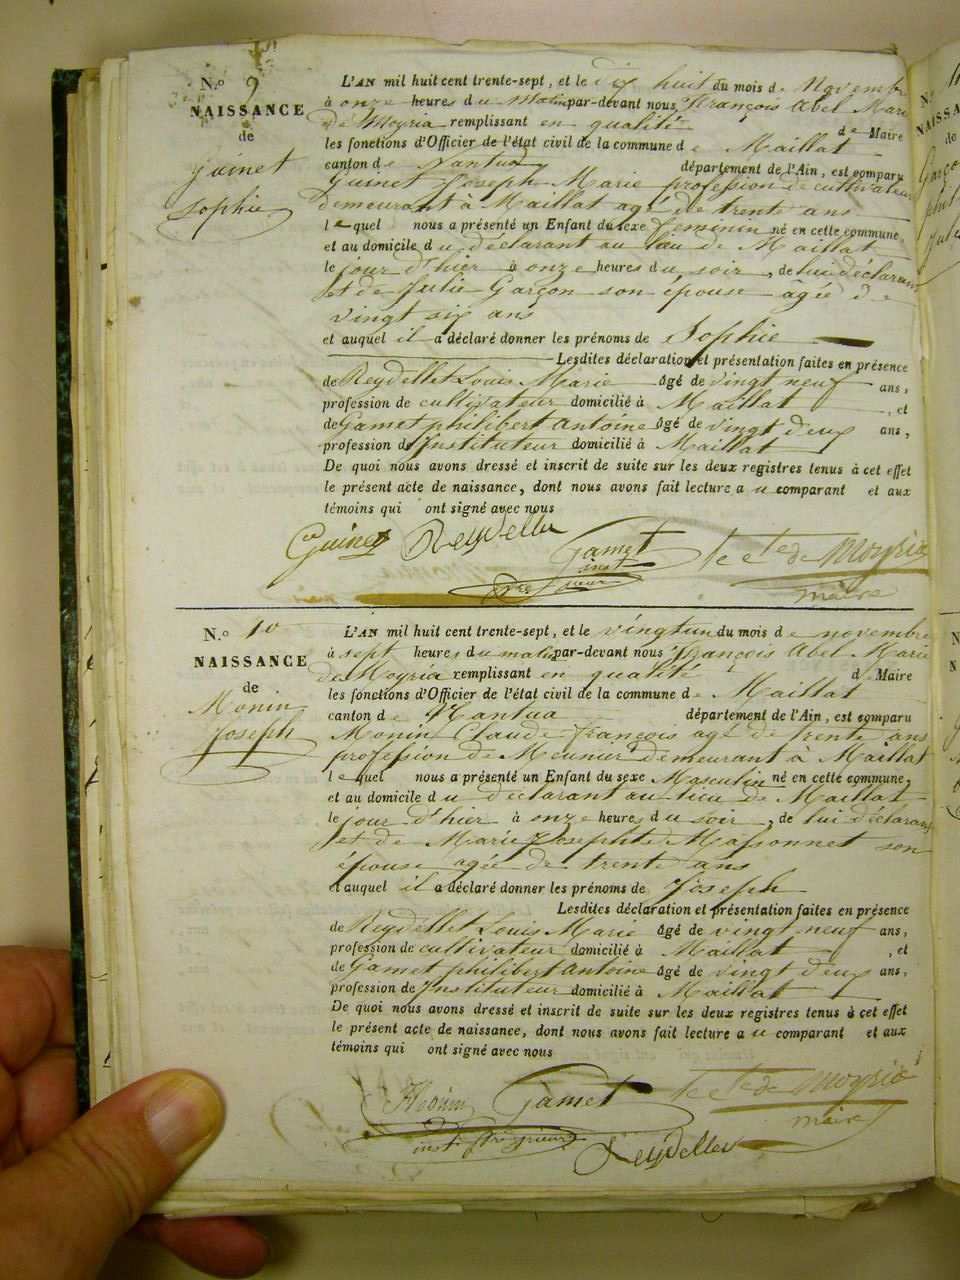 N.º 9
NAISSANCE
de
Guinet
Sophie
L'AN mil huit cent trente-sept, et le dix huit du mois de Novembre
à onze heures du Matin par-devant nous François Abel Marie
De Moyria remplissant en qualité de Maire
les fonctions d'Officier de l'état civil de la commune de Maillat
canton de Nantua département de l'Ain, est comparu
Guinet Joseph Marie profession de cultivateur
demeurant à Maillat agé de trente ans
lequel nous a présenté un Enfant du sexe feminin né en cette commune,
et au domicile du déclarant au lieu de Maillat
le jour d'hier à onze heures du soir, de lui déclarant
et de Julie Garçon son épouse âgée de
vingt six ans
et auquel il a déclaré donner les prénoms de Sophie
Lesdites déclaration et présentation faites en présence
de Reydellet Louis Marie âgé de vingt neuf ans,
profession de cultivateur domicilié à Maillat, et
de Gamet philibert Antoine âgé de vingt deux ans,
profession d'Instituteur domicilié à Maillat
De quoi nous avons dressé et inscrit de suite sur les deux registres tenus à cet effet
le présent acte de naissance, dont nous avons fait lecture au comparant et aux
témoins qui ont signé avec nous
Guinet Reydellet Gamet le Cte de Moyria
inst maire
N.º 10
NAISSANCE
de
Monin
Joseph
L'AN mil huit cent trente-sept, et le vingt un du mois de novembre
à sept heures du matin par-devant nous François Abel Marie
de Moyria remplissant en qualité d Maire
les fonctions d'Officier de l'état civil de la commune de Maillat
canton de Nantua département de l'Ain, est comparu
Monin Claude françois agé de trente ans
profession de Meunier demeurant à Maillat
lequel nous a présenté un Enfant du sexe Masculin né en cette commune,
et au domicile du déclarant au lieu de Maillat
le jour d'hier à onze heures du soir, de lui déclarant
et de Marie Josephte Massonnet son
épouse agée de trente ans
et auquel il a déclaré donner les prénoms de Joseph
Lesdites déclaration et présentation faites en présence
de Reydellet Louis Marie âgé de vingt neuf ans,
profession de cultivateur domicilié à Maillat, et
de Gamet philibert Antoine âgé de vingt deux ans,
profession de Instituteur domicilié à Maillat
De quoi nous avons dressé et inscrit de suite sur les deux registres tenus à cet effet
le présent acte de naissance, dont nous avons fait lecture au comparant et aux
témoins qui ont signé avec nous
Monin Gamet le Cte de Moyria
inst maire
Reydellet